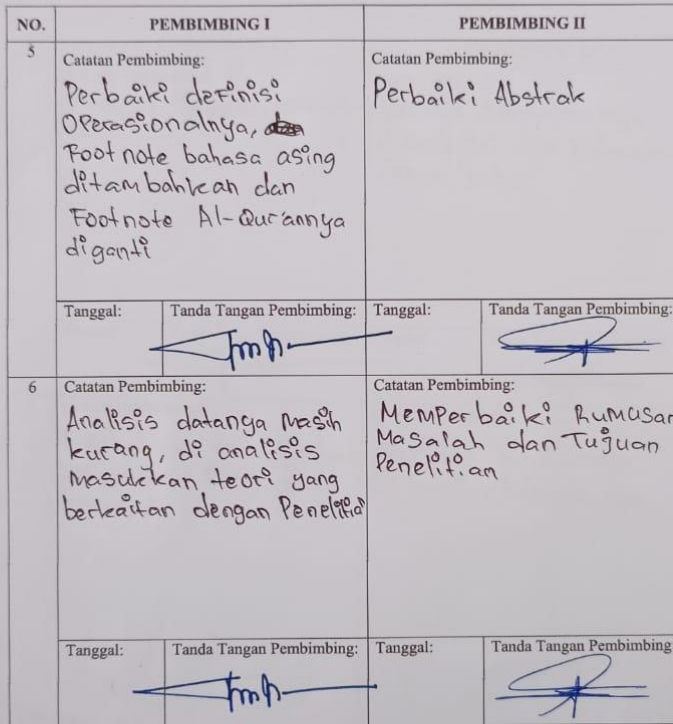 NO.
PEMBIMBING I
PEMBIMBING II
5
Catatan Pembimbing:
Perbaiki definisi
Operasionalnya,
Footnote bahasa asing
ditambahkan dan
Footnote Al-Qur'annya
diganti
Catatan Pembimbing:
Perbaiki Abstrak
Tanggal:
Tanda Tangan Pembimbing:
Tanggal:
Tanda Tangan Pembimbing:
6
Catatan Pembimbing:
Analisis datanya masih
kurang, di analisis
masukkan teori yang
berkaitan dengan Penelitian
Catatan Pembimbing:
Memperbaiki Rumusan
Masalah dan Tujuan
Penelitian
Tanggal:
Tanda Tangan Pembimbing:
Tanggal:
Tanda Tangan Pembimbing